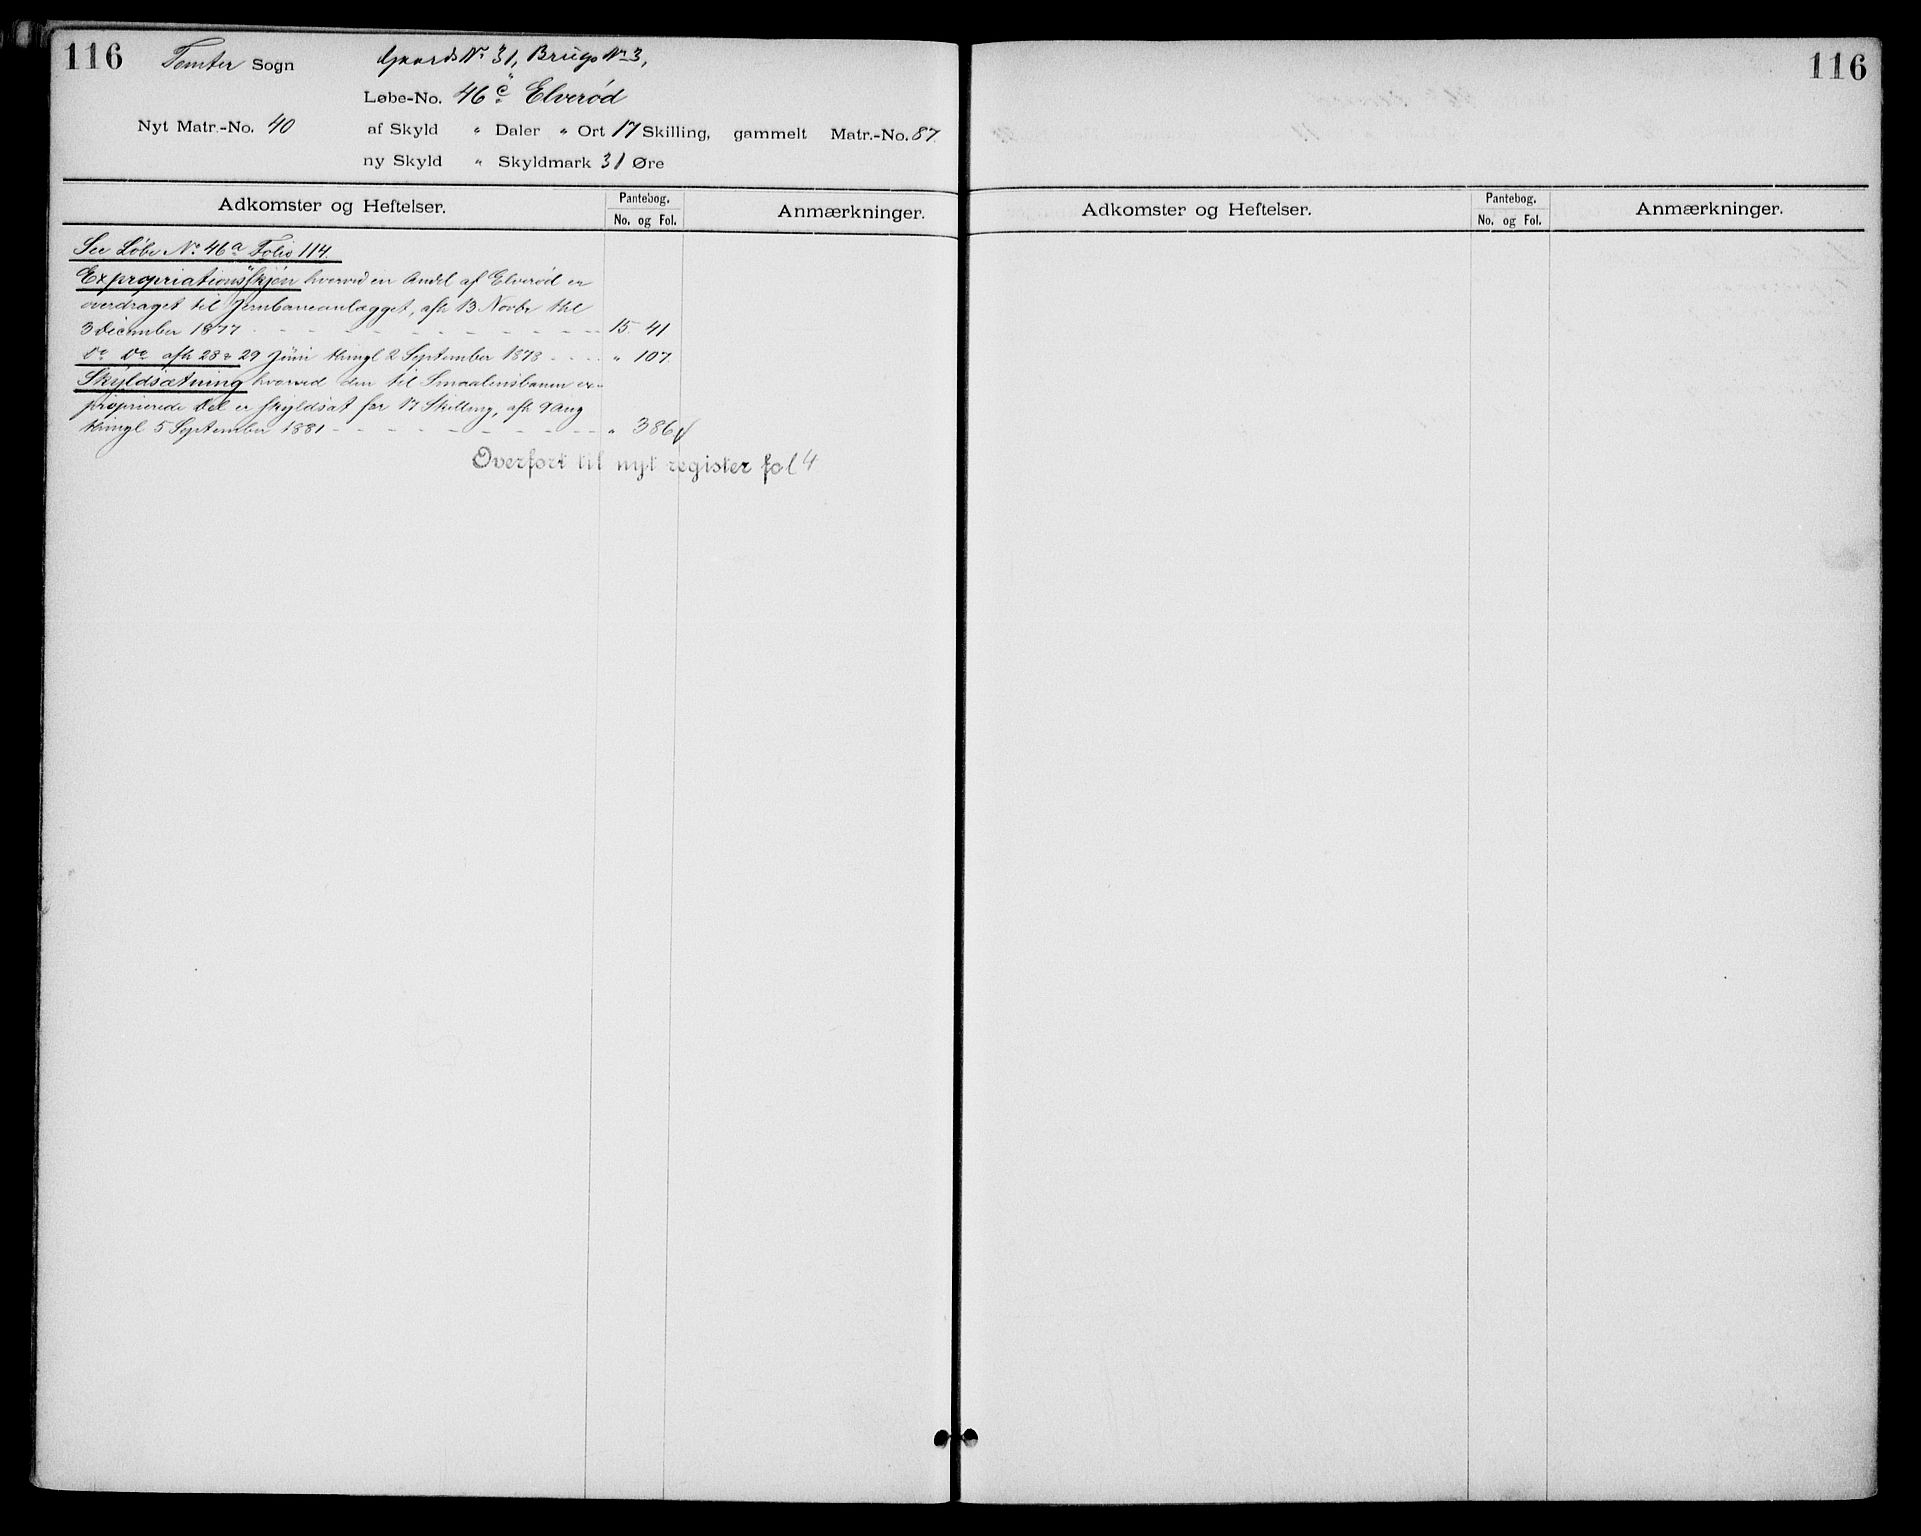 116
Tomter Sogn
Gaards Nr 31, Brugs Nr 3,
Løbe-No. 46 c Elverød
Nyt Matr.-No. 40
af Skyld " Daler " Ort 17 Skilling, gammelt Matr.-No. 87.
ny Skyld " Skyldmark 31 Øre
Adkomster og Heftelser.
Pantebog.
No. og Fol.
Anmærkninger.
See Løbe No 46a Folio 114.
Expropriationsskjøn hvorved en Andel af Elverød er
overdraget til Jernbaneanlægget, afh 13 Novbr thl
3 December 1877 - - - - - - - - 15. 41
Do Do afh 28 & 29 Juni thingl 2 September 1878 - - - " 107.
Skyldsætning hvorved den til Smaalensbanen ex-
proprierede Del er skyldsat for 17 Skilling, afh 9 Aug
thingl 5 September 1881 - - - - - - - - " 386
Overført til nyt register fol 4
116
Adkomster og Heftelser.
Pantebog.
No. og Fol.
Anmærkninger.